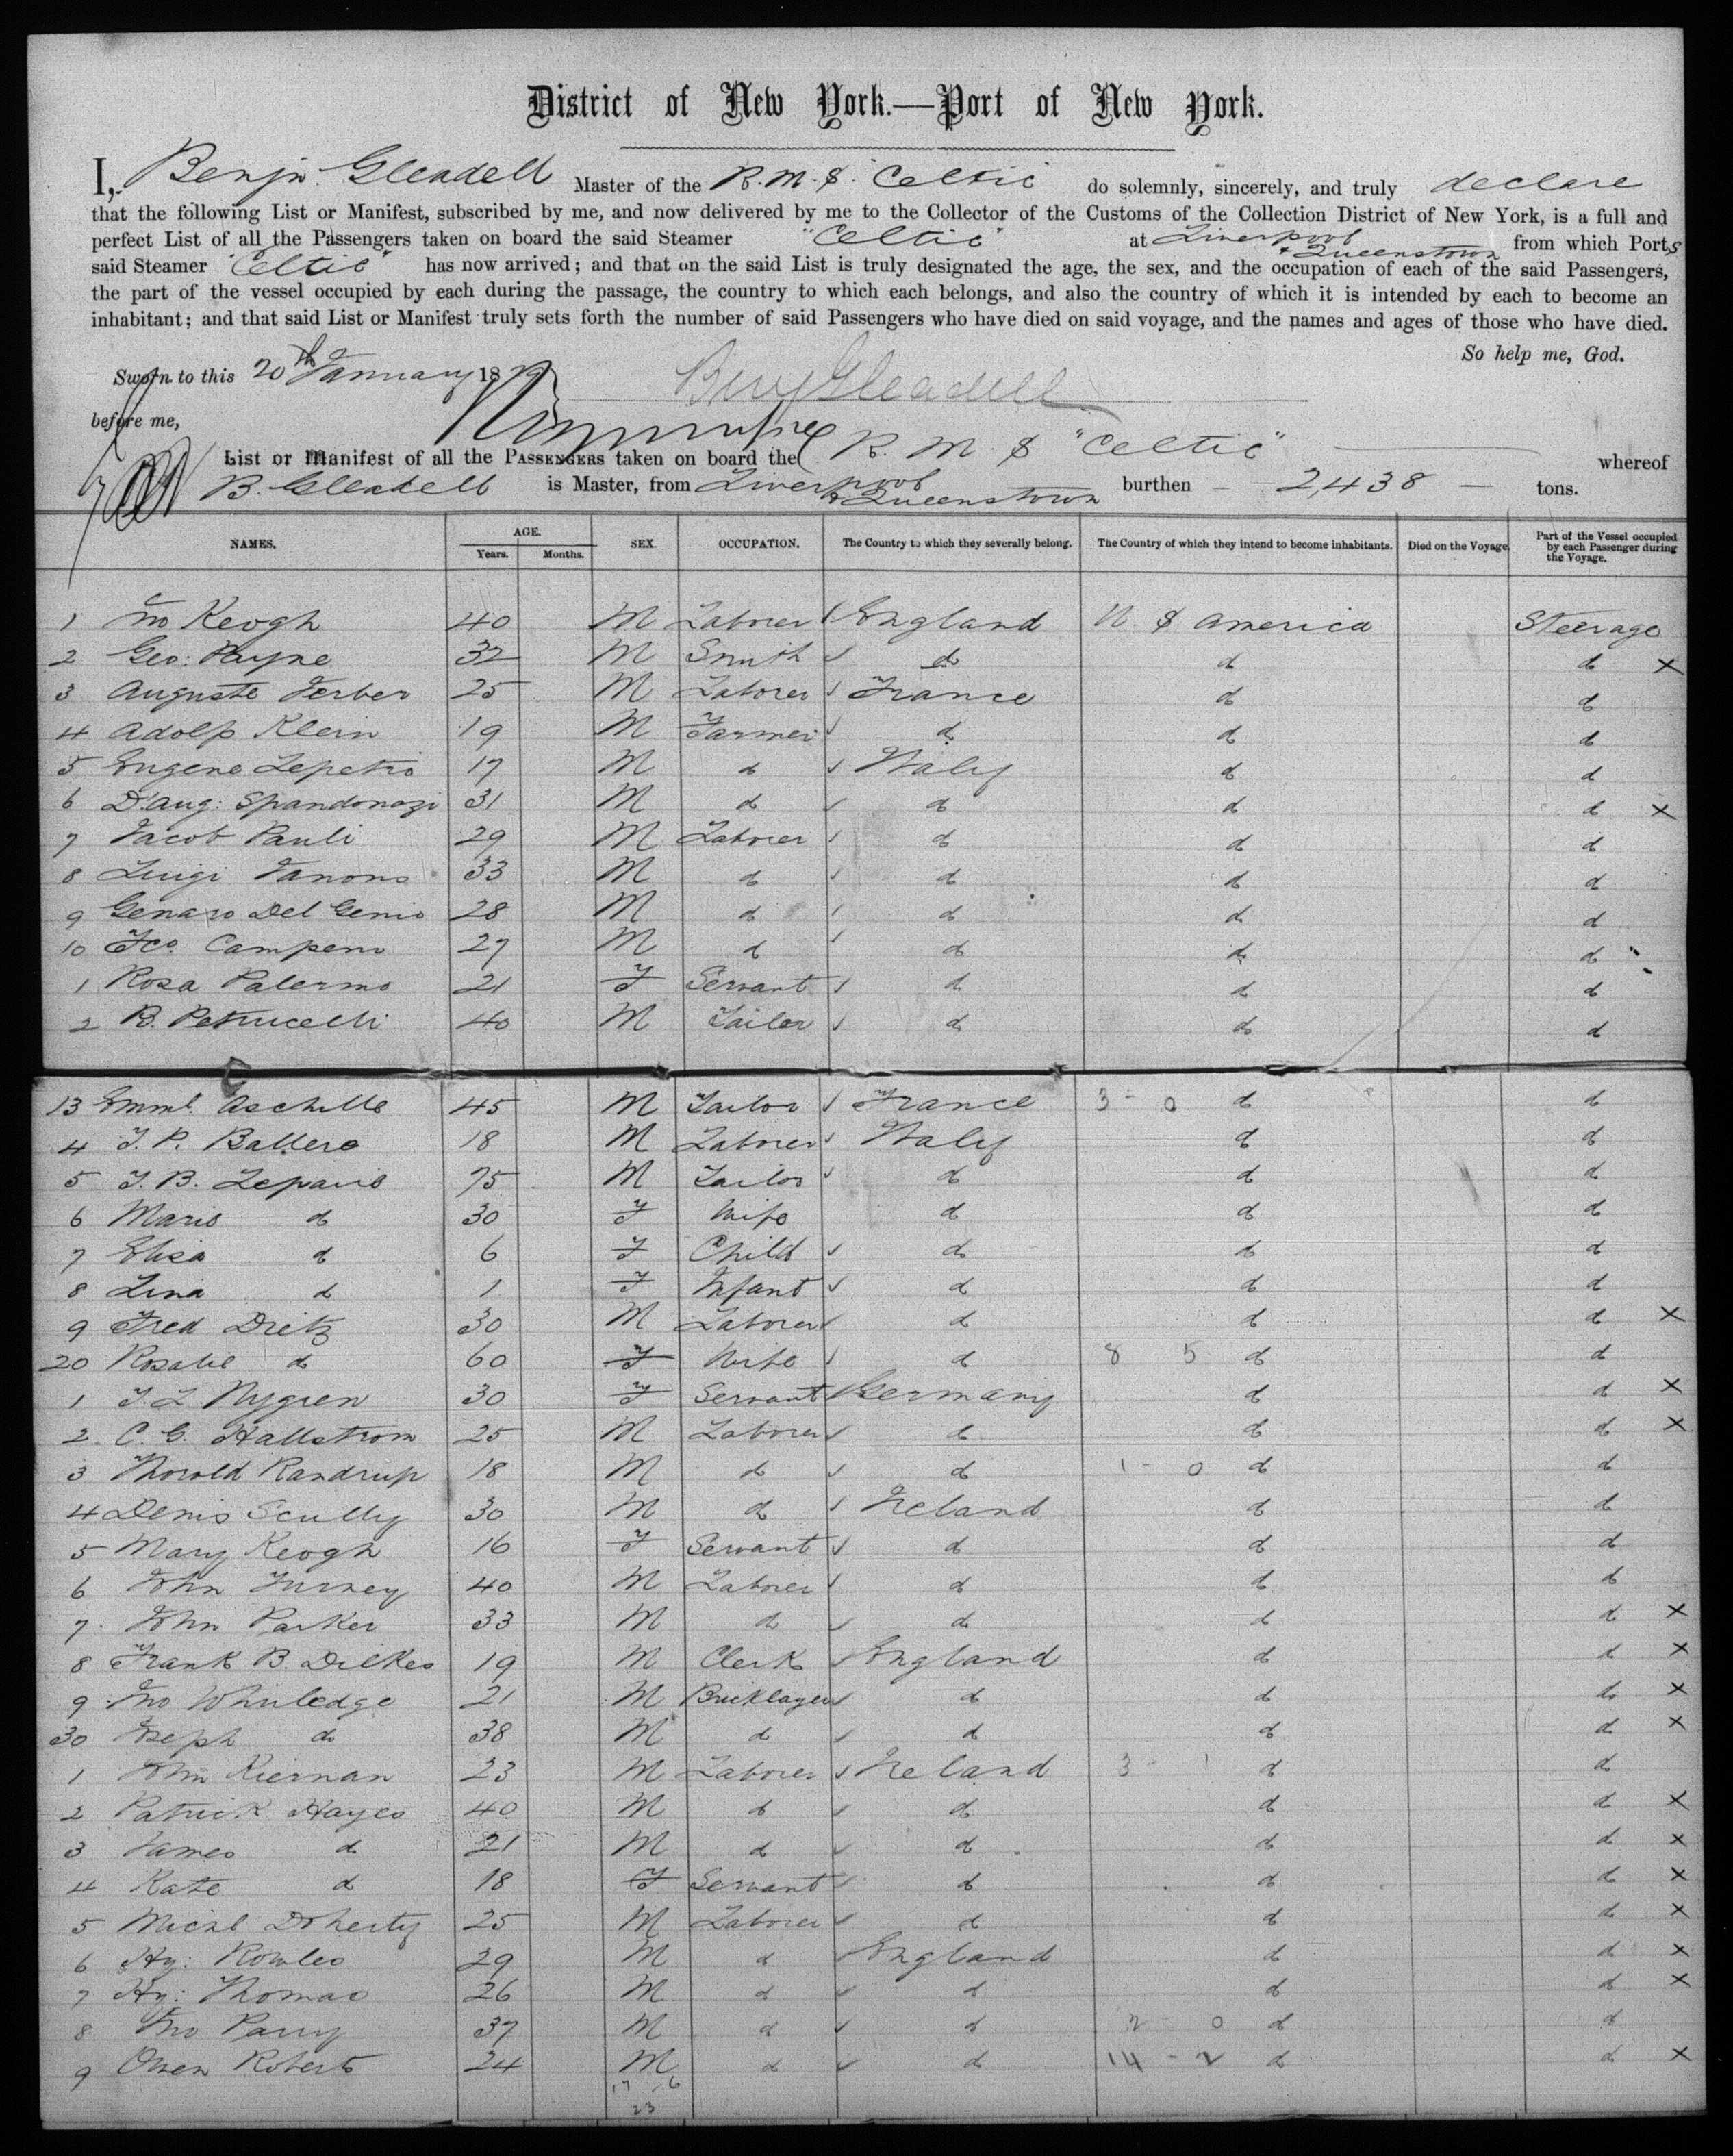 District of New York.—Port of New York.
I, Benjn. Gleadell Master of the R.M.S. Celtic do solemnly, sincerely, and truly declare
that the following List or Manifest, subscribed by me, and now delivered by me to the Collector of the Customs of the Collection District of New York, is a full and
perfect List of all the Passengers taken on board the said Steamer "Celtic" at Liverpool + Queenstown from which Ports
said Steamer "Celtic" has now arrived; and that on the said List is truly designated the age, the sex, and the occupation of each of the said Passengers,
the part of the vessel occupied by each during the passage, the country to which each belongs, and also the country of which it is intended by each to become an
inhabitant; and that said List or Manifest truly sets forth the number of said Passengers who have died on said voyage, and the names and ages of those who have died.
So help me, God.
Sworn to this 20th January 18
Benj Gleadell
before me,
List or Manifest of all the PASSENGERS taken on board the R. M. S "Celtic" whereof
B. Gleadell is Master, from Liverpool & Queenstown burthen — 2,438 — tons.
NAMES. AGE. Years. Months. SEX. OCCUPATION. The Country to which they severally belong. The Country of which they intend to become inhabitants. Died on the Voyage. Part of the Vessel occupied by each Passenger during the Voyage.
1 Jno Keogh 40 M Laborer England U. S America Steerage
2 Geo: Payne 32 M Smith do do do X
3 Auguste Ferber 25 M Laborer France do do
4 Adolp Klein 19 M Farmer do do do
5 Eugene Lepetio 17 M do Italy do do
6 D. Aug: Spandonazi 31 M do do do do X
7 Jacob Pauli 29 M Laborer do do do
8 Luigi Janono 33 M do do do do
9 Genaro Del Genio 28 M do do do do
10 Fco. Campeno 27 M do do do do
1 Rosa Palermo 21 F Servant do do do
2 B. Petrucelli 40 M Tailor do do do
13 Emml. Aschille 45 M Tailor France 3 - 0 do do
4 J. P. Ballero 18 M Laborer Italy do do
5 J. B. Leparie 75 M Tailor do do do
6 Marie do 30 F Wife do do do
7 Elisa do 6 F Child do do do
8 Lina do 1 F Infant do do do
9 Fred Dietz 30 M Laborer do do do X
20 Rosalie do 60 F Wife do 8 5 do do
1 J. L Nygren 30 F Servant Germany do do X
2 C. G. Hallstrom 25 M Laborer do do do X
3 Thorold Randrup 18 M do do 1 - 0 do do
4 Denis Scully 30 M do Ireland do do
5 Mary Keogh 16 F Servant do do do
6 John Turney 40 M Laborer do do do
7 John Parker 33 M do do do do X
8 Frank B. Dilkes 19 M Clerk England do do X
9 Jno Whiledge 21 M Bricklayer do do do X
30 Joseph do 38 M do do do do X
1 John Kiernan 23 M Laborer Ireland 3 - 1 do do
2 Patrick Hayes 40 M do do do do X
3 James do 21 M do do do do X
4 Kate do 18 F Servant do do do X
5 Michl Doherty 25 M Laborer do do do X
6 Hy: Rowles 29 M do England do do X
7 Hy: Thomas 26 M do do do do X
8 Jno Parry 37 M do do 2 0 do do
9 Owen Roberts 24 M do do 14 - 2 do do X
17 - 6
23